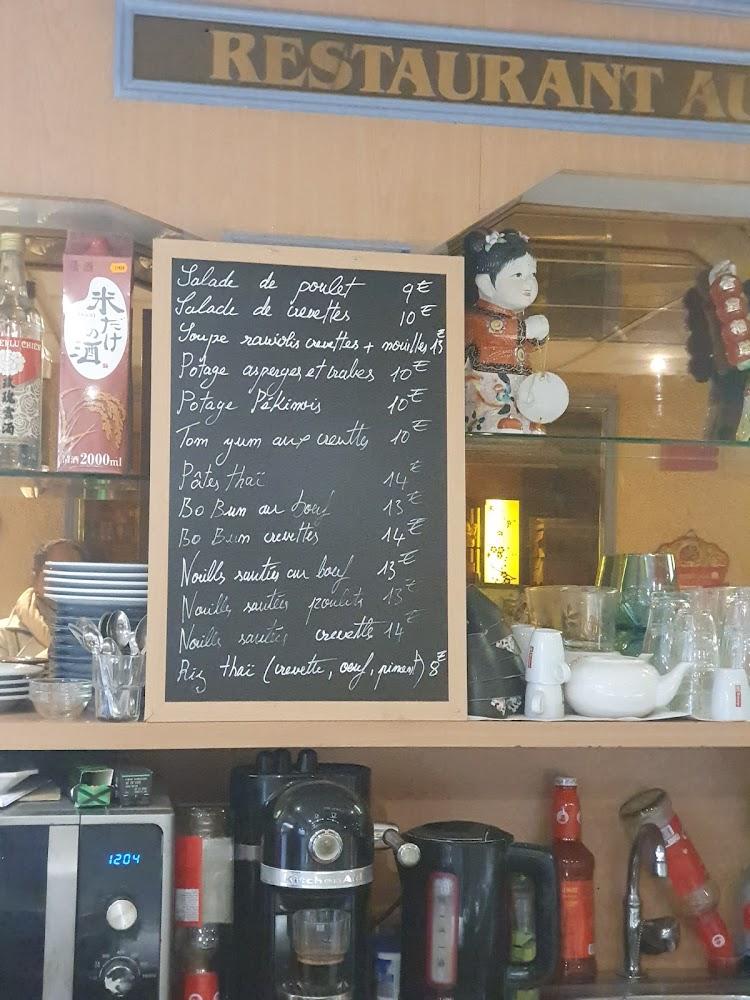 RESTAURANT AU
Salade de poulet 9€
Salade de crevettes 10€
Soupe raviolis crevettes + nouilles 13€
Potage asperges et crabes 10€
Potage Pékinois 10€
Tom yum aux crevettes 10€
Pâtes thaï 14€
Bo Bun au boeuf 13€
Bo Bun crevettes 14€
Nouilles sautées au boeuf 13€
Nouilles sautées poulets 13€
Nouilles sautées crevette 14€
Riz thaï (crevette, oeuf, piment) 8€
米だけ
の酒
清酒 2000ml
玫瑰露酒
1204
KitchenAid